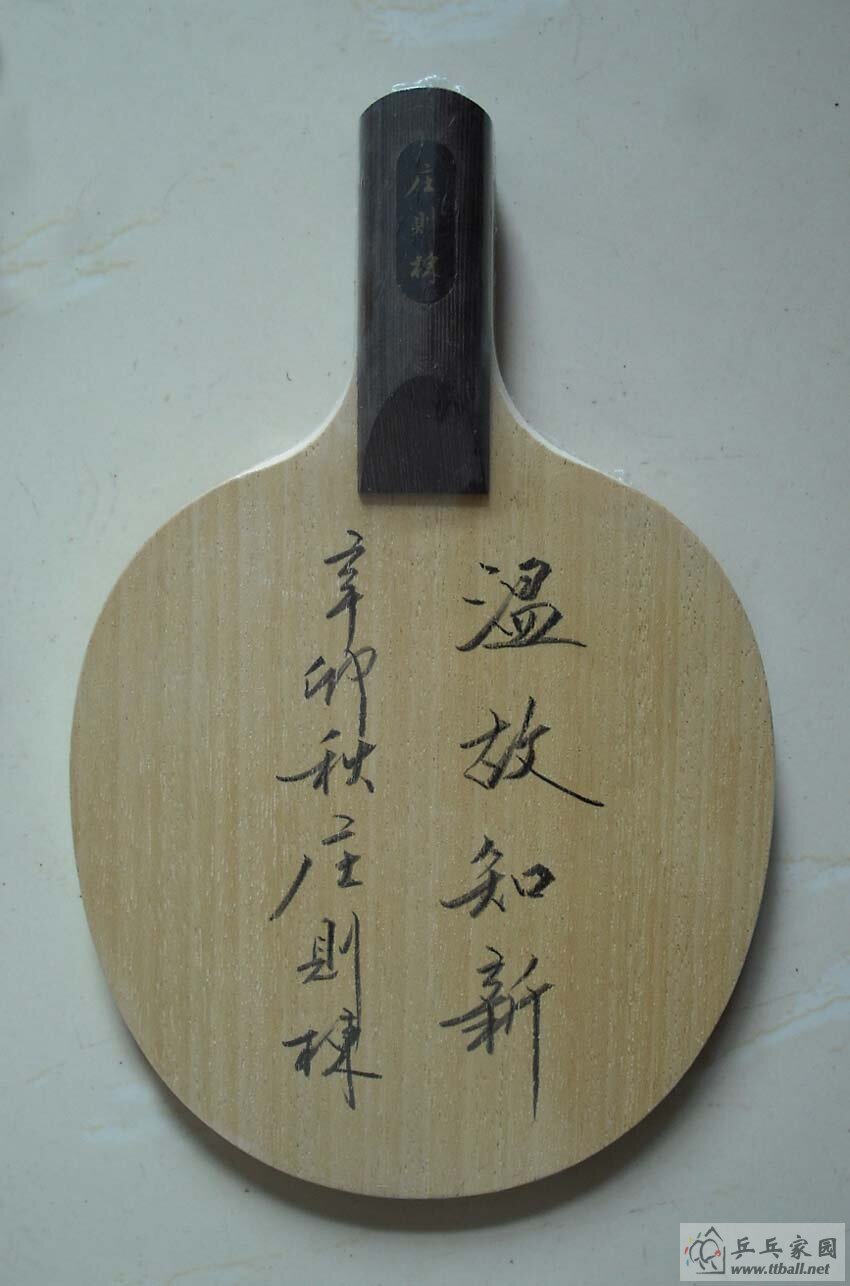 庄則棟
温故知新
辛卯秋庄則棟
乒乓家园
www.ttball.net